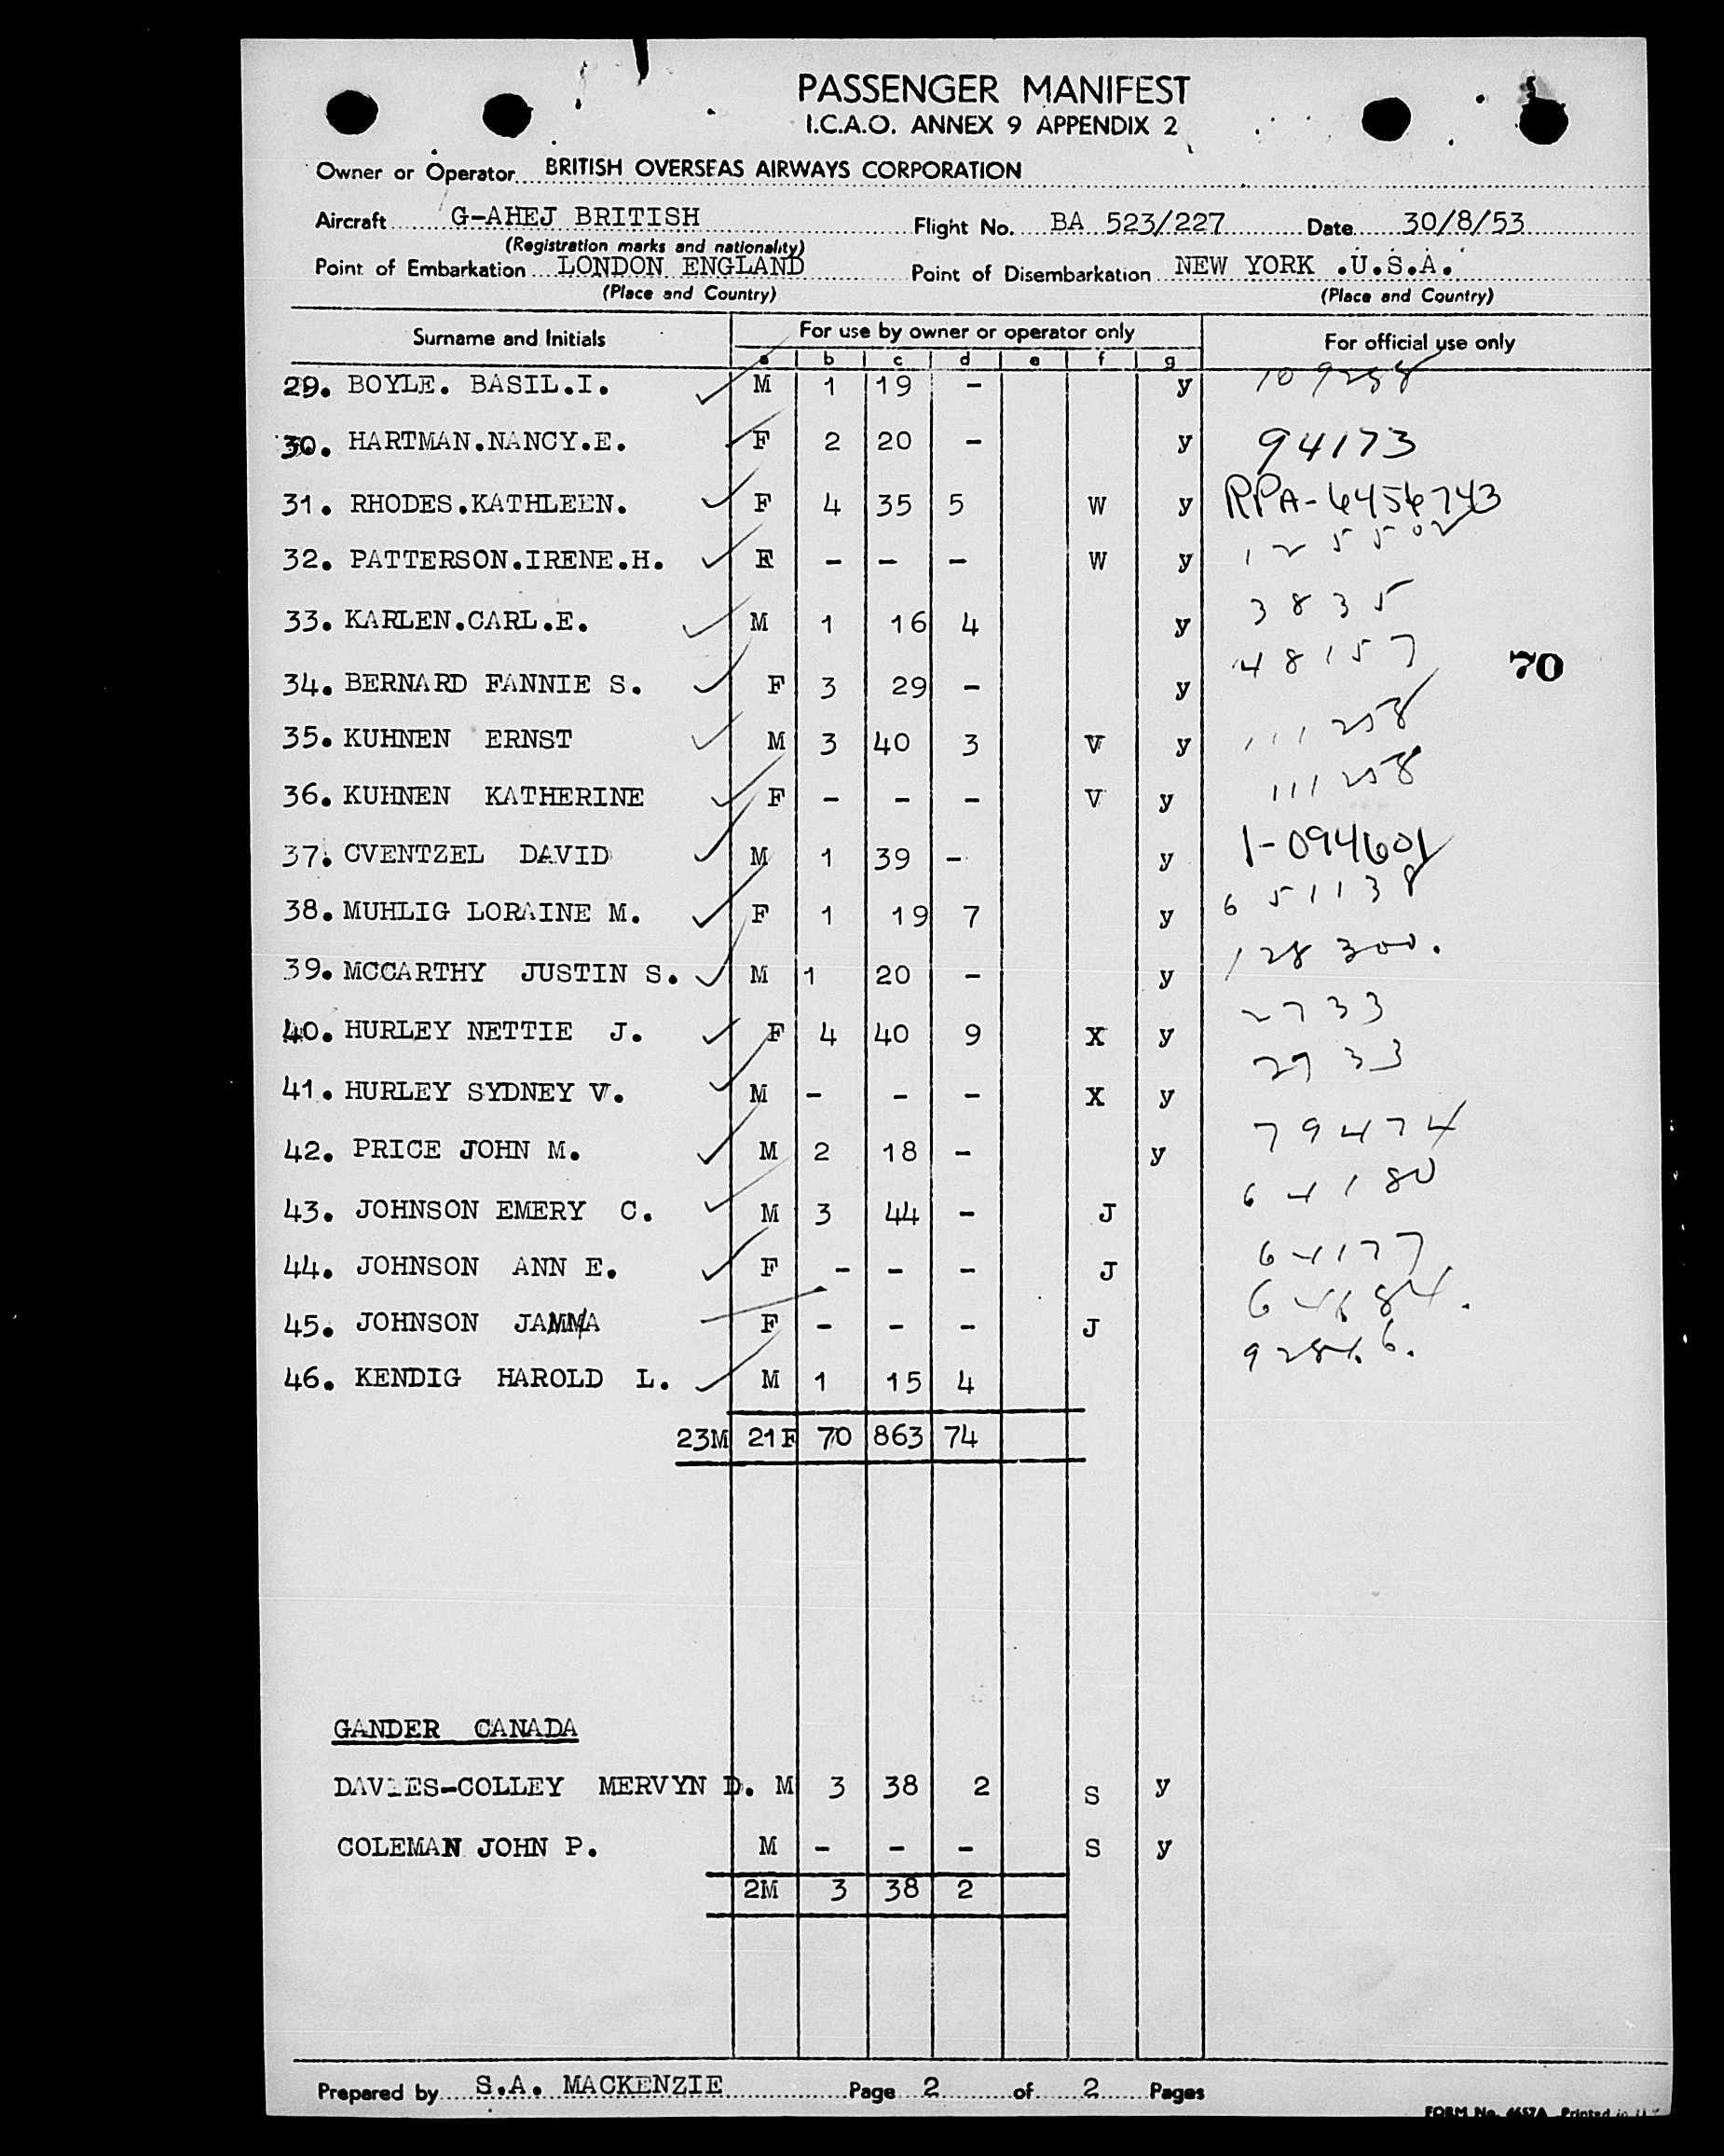 PASSENGER MANIFEST
I.C.A.O. ANNEX 9 APPENDIX 2
Owner or Operator BRITISH OVERSEAS AIRWAYS CORPORATION
Aircraft G-AHEJ BRITISH Flight No. BA 523/227 Date 30/8/53
(Registration marks and nationality)
Point of Embarkation LONDON ENGLAND Point of Disembarkation NEW YORK .U.S.A.
(Place and Country) (Place and Country)
Surname and Initials For use by owner or operator only For official use only
a b c d e f g
29. BOYLE. BASIL.I. M 1 19 - y 109258
30. HARTMAN.NANCY.E. F 2 20 - y 94173
31. RHODES.KATHLEEN. F 4 35 5 W y RPA-6456743
32. PATTERSON.IRENE.H. F - - - W y 125502
33. KARLEN.CARL.E. M 1 16 4 y 3835
34. BERNARD FANNIE S. F 3 29 - y 48157
70
35. KUHNEN ERNST M 3 40 3 V y 111258
36. KUHNEN KATHERINE F - - - V y 111258
37. CVENTZEL DAVID M 1 39 - y 1-094601
38. MUHLIG LORAINE M. F 1 19 7 y 651138
39. MCCARTHY JUSTIN S. M 1 20 - y 128300.
40. HURLEY NETTIE J. F 4 40 9 X y 2733
41. HURLEY SYDNEY V. M - - - X y 2733
42. PRICE JOHN M. M 2 18 - y 79474
43. JOHNSON EMERY C. M 3 44 - J 64180
44. JOHNSON ANN E. F - - - J 64177
45. JOHNSON F - - - J
46. KENDIG HAROLD L. M 1 15 4
23M 21F 70 863 74
GANDER CANADA
DAVIES-COLLEY MERVYN D. M 3 38 2 S y
COLEMAN JOHN P. M - - - S y
2M 3 38 2
Prepared by S.A. MACKENZIE Page 2 of 2 Pages
FORM No. 4657A Printed in